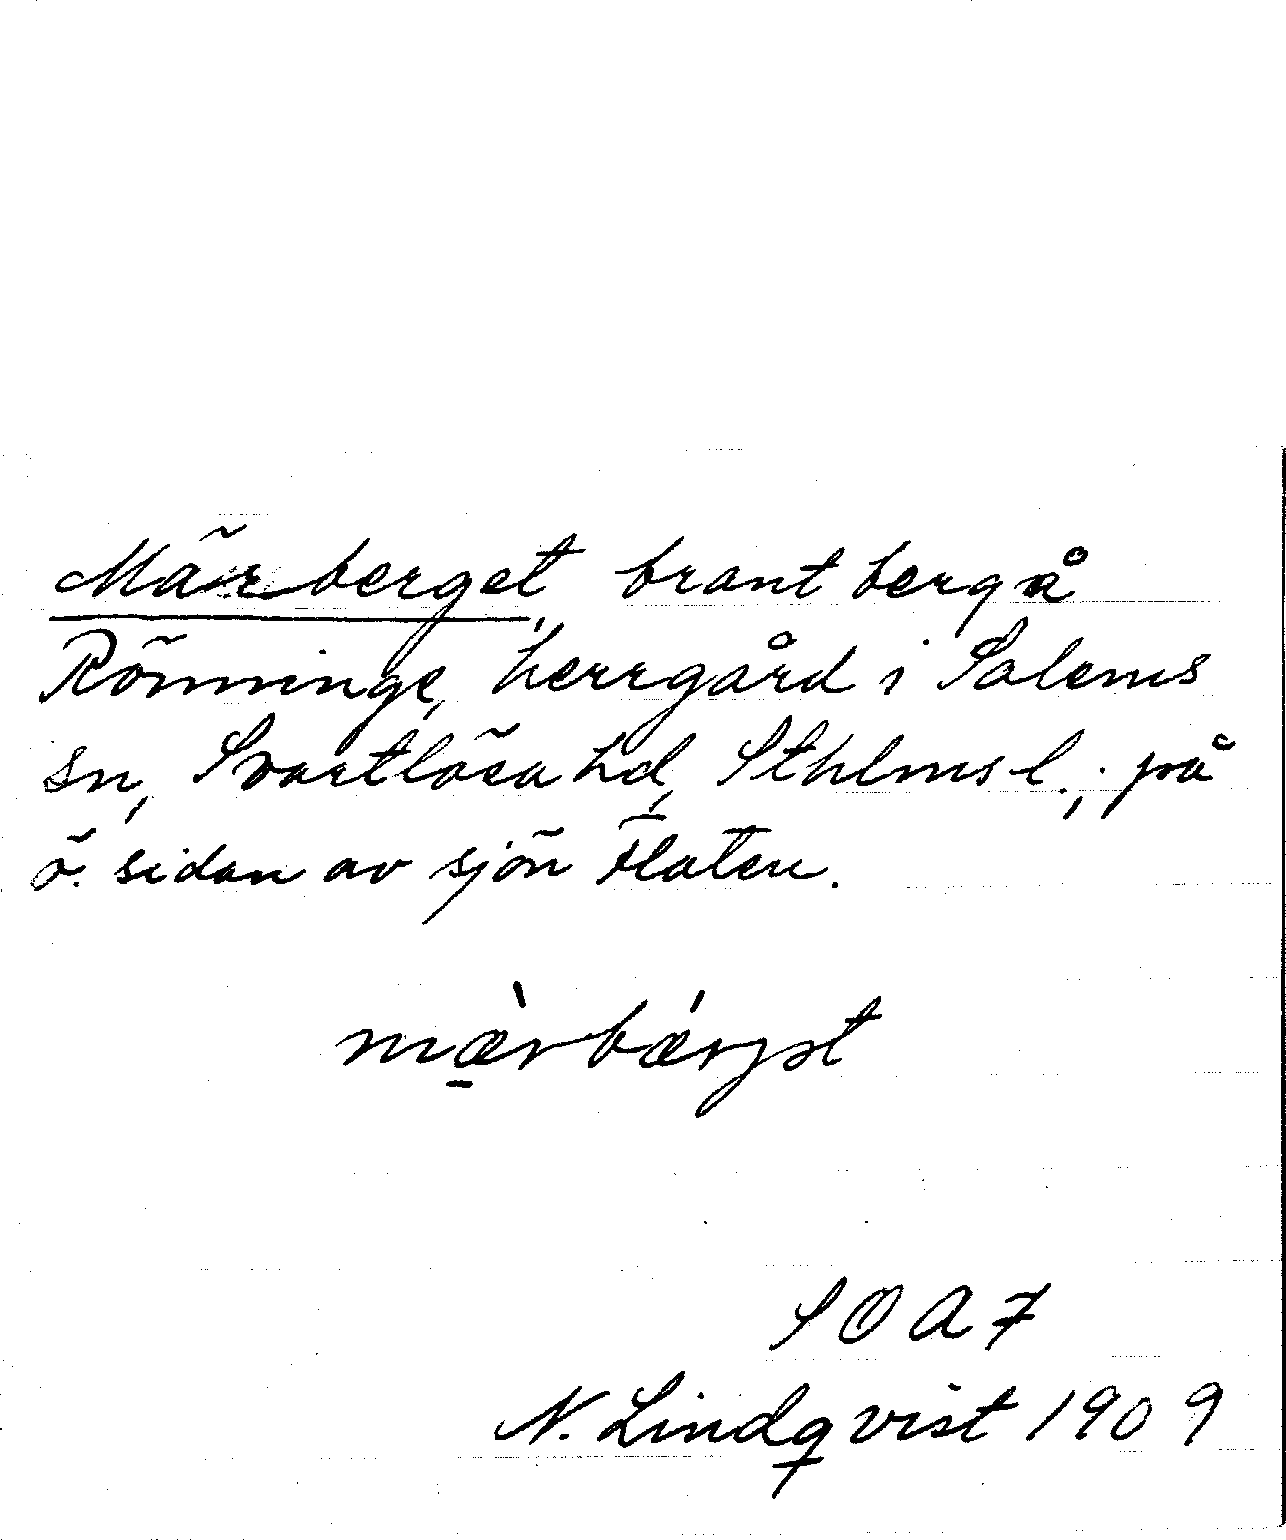 Märberget, brant berg å
Rönninge, herrgård i Salems
sn, Svartlösa hd, Sthlms l.; på
ö. sidan av sjön Flaten.
mæ̠̀rbǽrjət
SOA 7
N. Lindqvist 1909